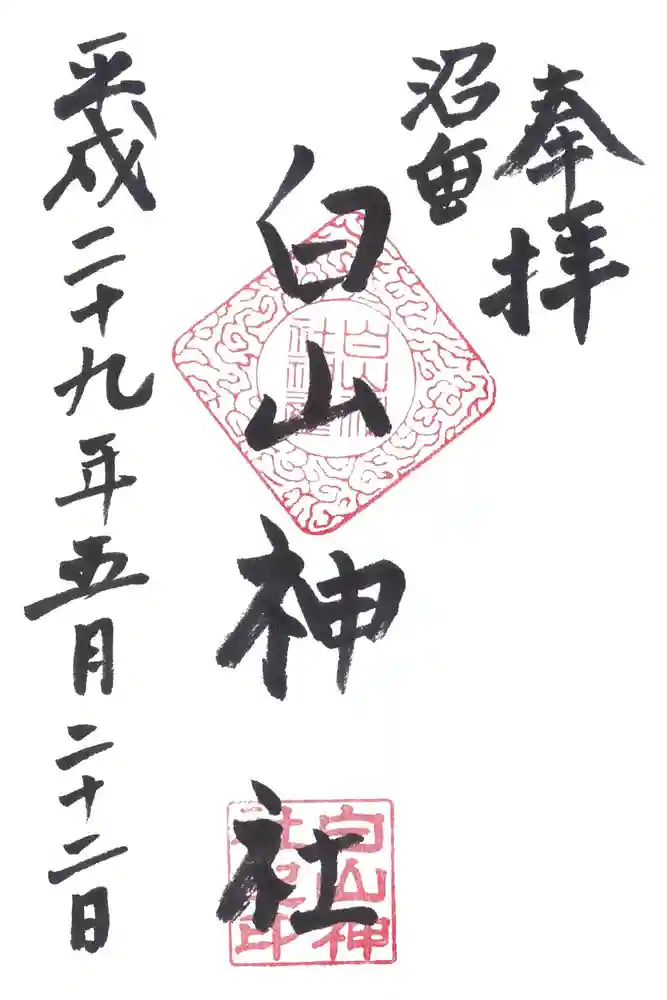 奉拝
沼垂
白山神社
白山神社
白山神社之印
平成二十九年五月二十二日